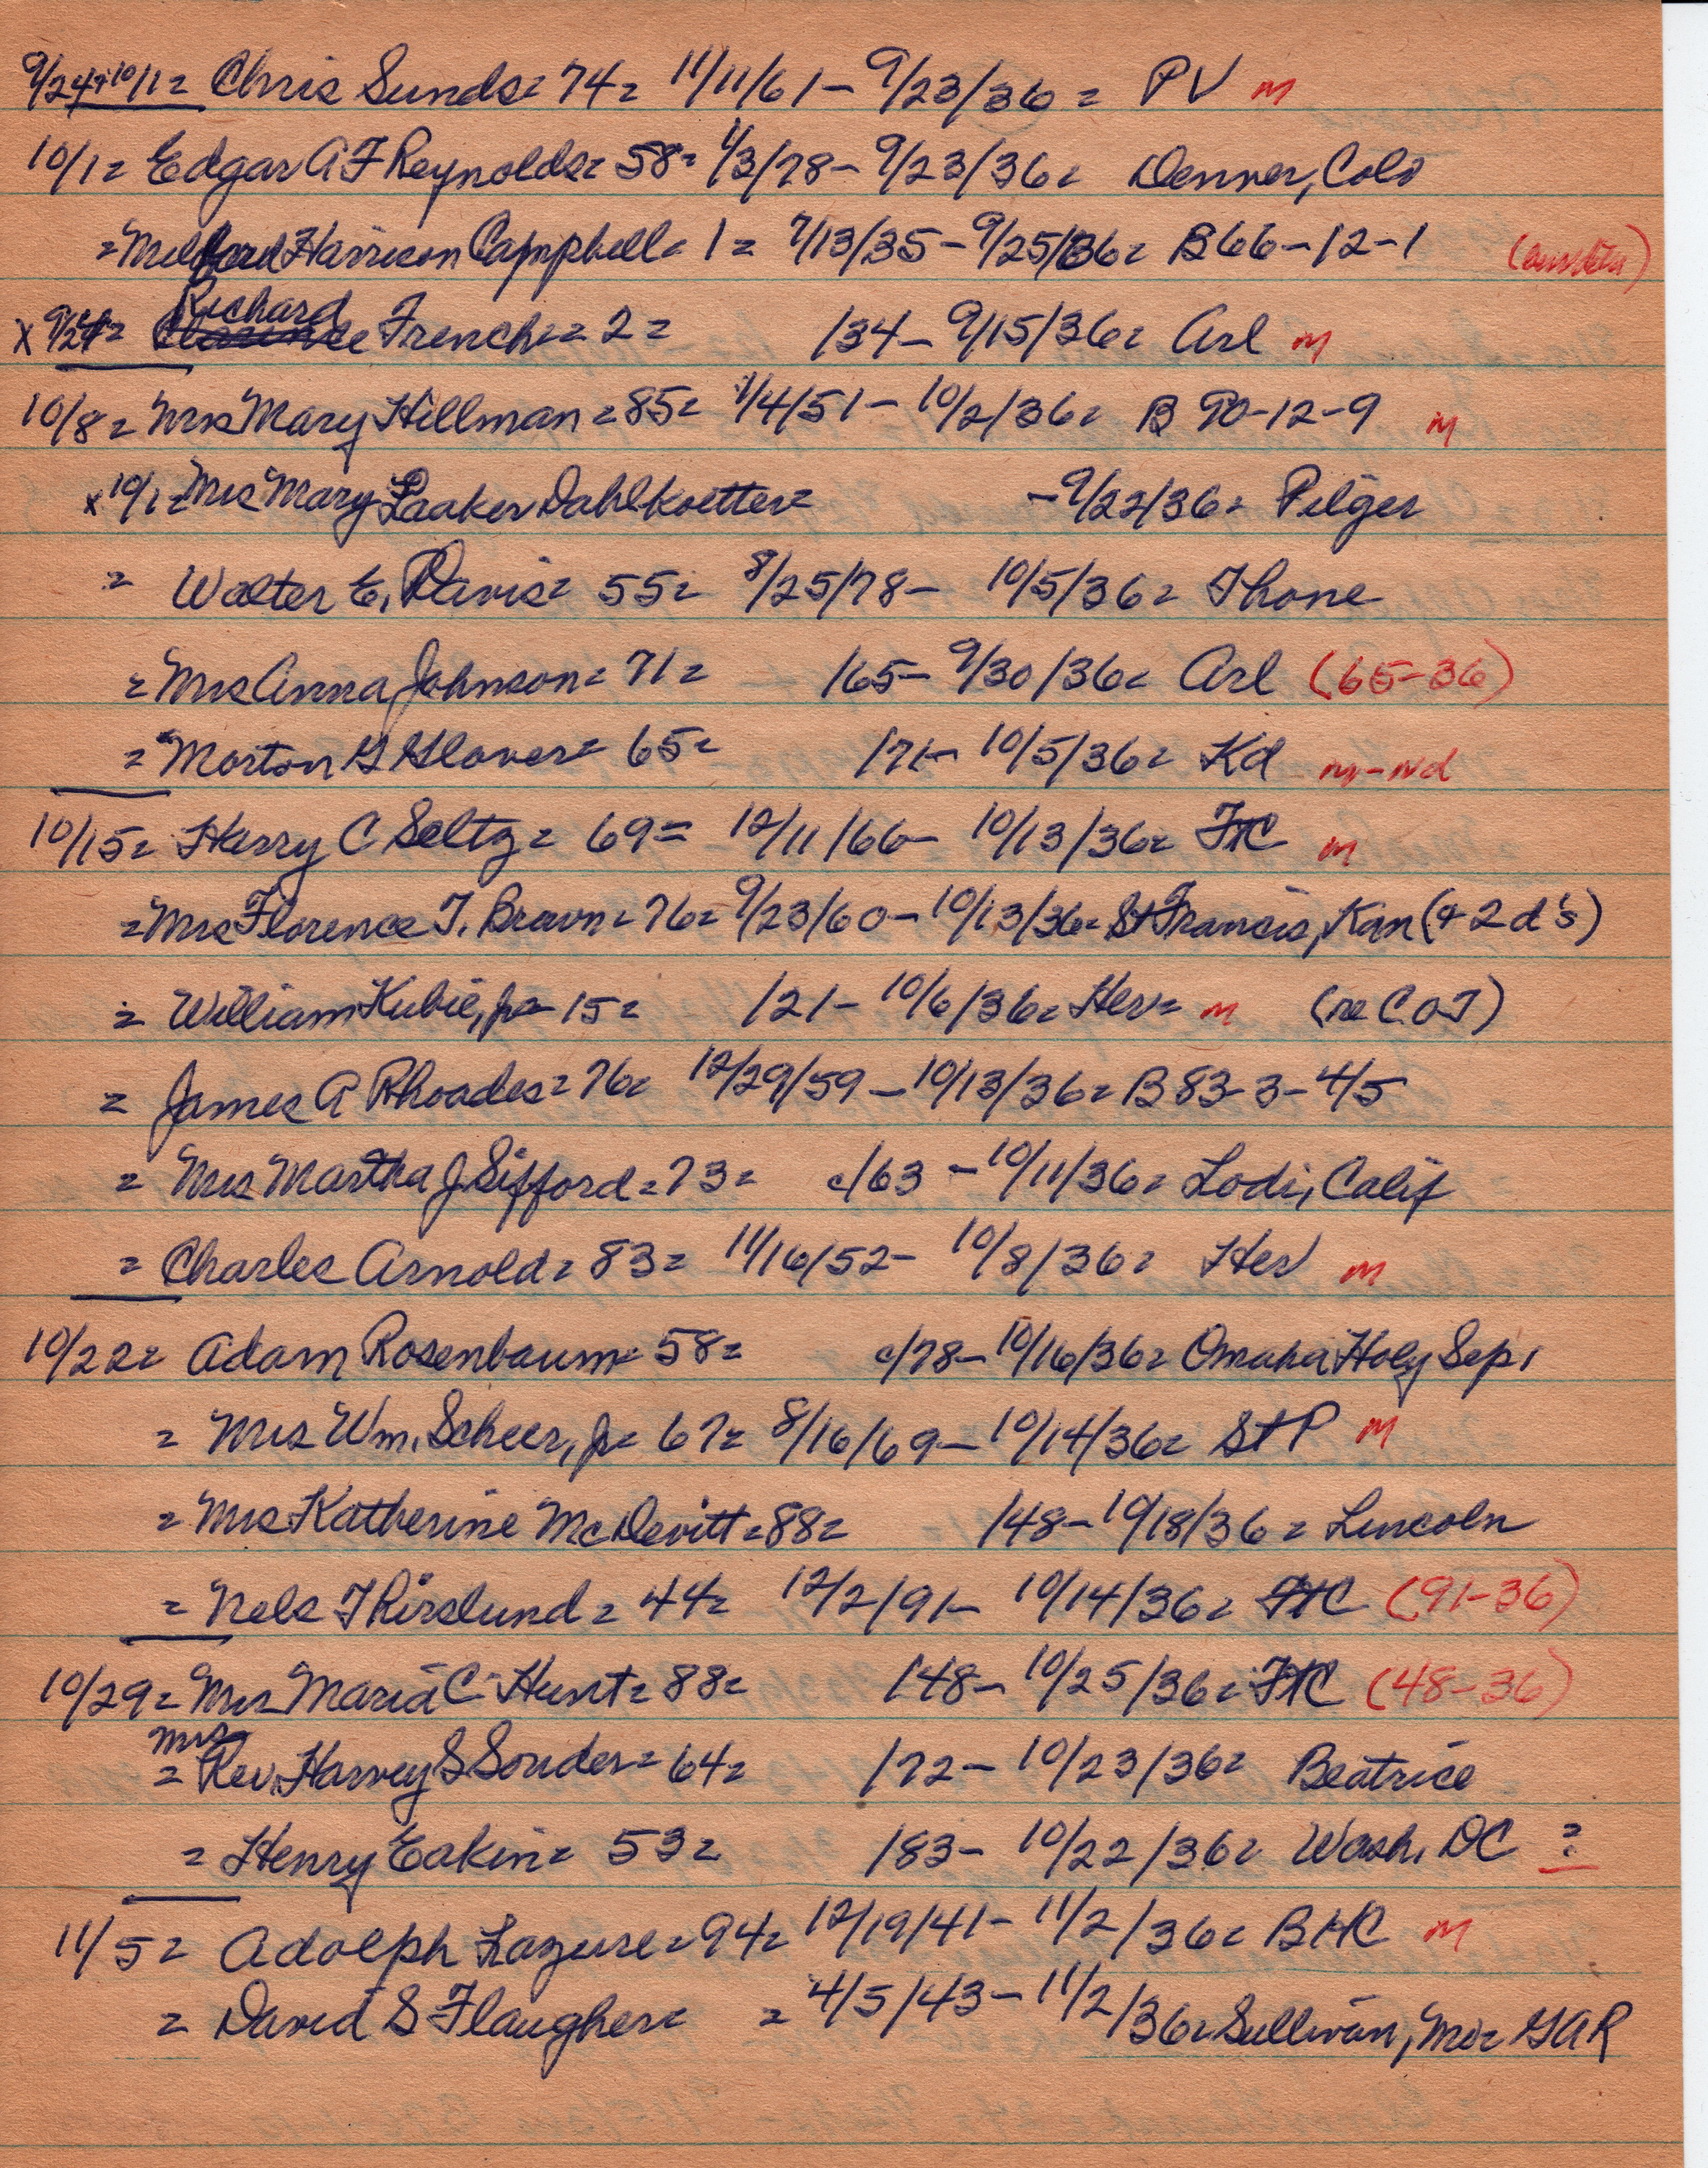 9/24+10/1= Chris Sunds= 74= 11/11/61- 9/23/36= PV m
10/1= Edgar A F Reynolds= 58= 1/3/78- 9/23/36= Denver, Colo
= Milford Harrison Campbell= 1= 7/13/35- 9/25/36= B 66-12-1
x 9/24= Richard French= 2= /34- 9/15/36= Arl m
10/8= Mrs Mary Hillman= 85= 1/4/51- 10/2/36= B 90-12-9 m
x 10/1= Mrs Mary Laaker Dahlkoetter= -9/22/36= Pilger
= Walter E. Davis= 55= 8/25/78- 10/5/36= Thone
= Mrs Anna Johnson= 71= /65- 9/30/36= Arl (65-36)
= Morton G Glover= 65= /71- 10/5/36= Kd m-nd
10/15= Harry C Seltz= 69= 12/11/66- 10/13/36= FtC m
= Mrs Florence T. Brown= 76= 9/23/60- 10/13/36= St Francis, Kan (+ 2 d's)
= William Kubie, Jr= 15= /21- 10/6/36= Her= m (ne C of J)
= James A Rhoades= 76= 12/29/59- 10/13/36= B 83-3-4/5
= Mrs Martha J Sifford= 73= c/63- 10/11/36= Lodi, Calif
= Charles Arnold= 83= 11/16/52- 10/8/36= Her m
10/22= Adam Rosenbaum= 58= c/78- 10/16/36= Omaha Holy Sep.
= Mrs Wm. Scheer, Jr= 67= 8/16/69- 10/14/36= St P m
= Mrs Katherine McDevitt= 88= /48- 10/18/36= Lincoln
= Nels Thirslund= 44= 12/2/91- 10/14/36= FtC (91-36)
10/29= Mrs Maria C Hunt= 88= /48- 10/25/36= FtC (48-36)
= Mrs Rev. Harvey S Souder= 64= /72- 10/23/36= Beatrice
= Henry Eakin= 53= /83- 10/22/36= Wash. DC ?
11/5= Adolph Lazure= 94= 12/19/41- 11/2/36= BHC m
= David S Flaugher= = 4/5/43- 11/2/36= Sullivan, Mo= GAR